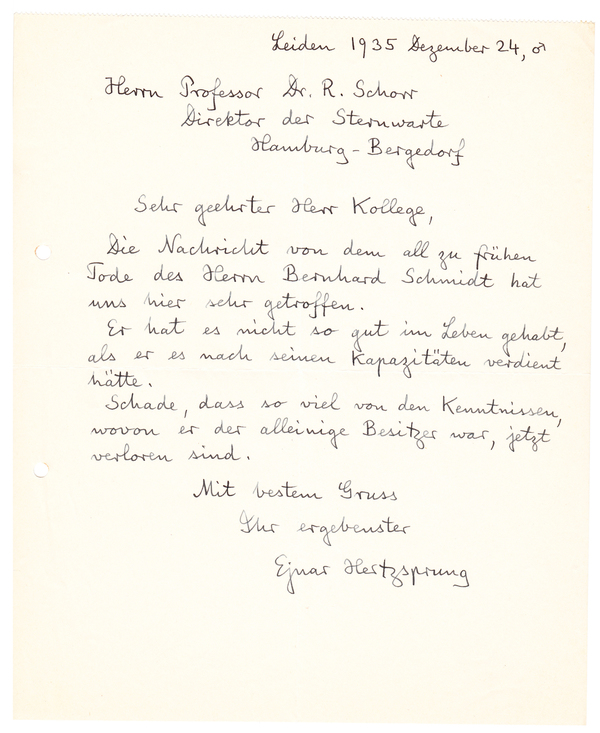 Leiden 1935 Dezember 24, ♂
Herrn Professor Dr. R. Schorr
Direktor der Sternwarte
Hamburg-Bergedorf
Sehr geehrter Herr Kollege,
Die Nachricht von dem all zu frühen
Tode des Herrn Bernhard Schmidt hat
uns hier sehr getroffen.
Er hat es nicht so gut im Leben gehabt,
als er es nach seinen Kapazitäten verdient
hätte.
Schade, dass so viel von den Kenntnissen,
wovon er der alleinige Besitzer war, jetzt
verloren sind.
Mit bestem Gruss
Ihr ergebenster
Ejnar Hertzsprung